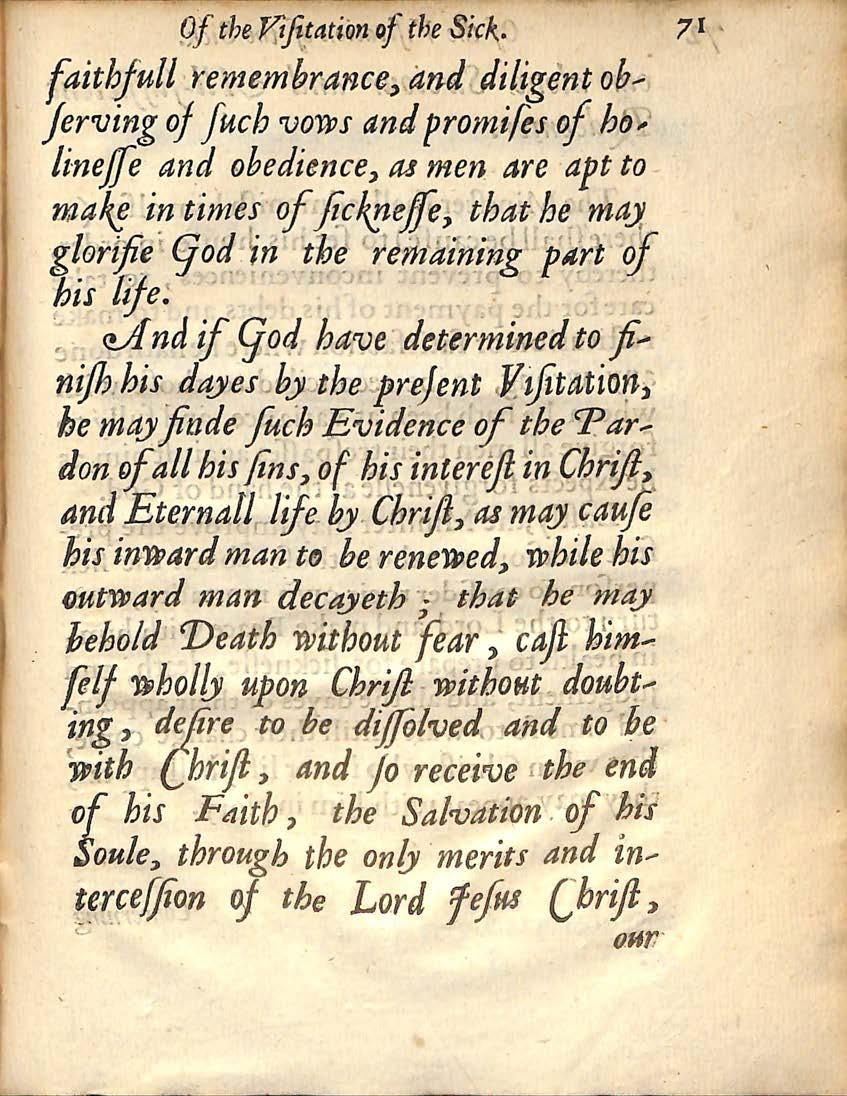 Of the Viſitation of the Sick. 71
faithfull remembrance, and diligent ob-
ſerving of ſuch vows and promiſes of ho-
lineſſe and obedience, as men are apt to
make in times of ſickneſſe, that he may
glorifie God in the remaining part of
his life.
And if God have determined to fi-
niſh his dayes by the preſent Viſitation,
he may finde ſuch Evidence of the Par-
don of all his ſins, of his intereſt in Chriſt,
and Eternall life by Chriſt, as may cauſe
his inward man to be renewed, while his
outward man decayeth; that he may
behold Death without fear, caſt him-
ſelf wholly upon Chriſt without doubt-
ing, deſire to be diſſolved and to be
with Chriſt, and ſo receive the end
of his Faith, the Salvation of his
Soule, through the only merits and in-
terceſſion of the Lord Jeſus Chriſt,
our